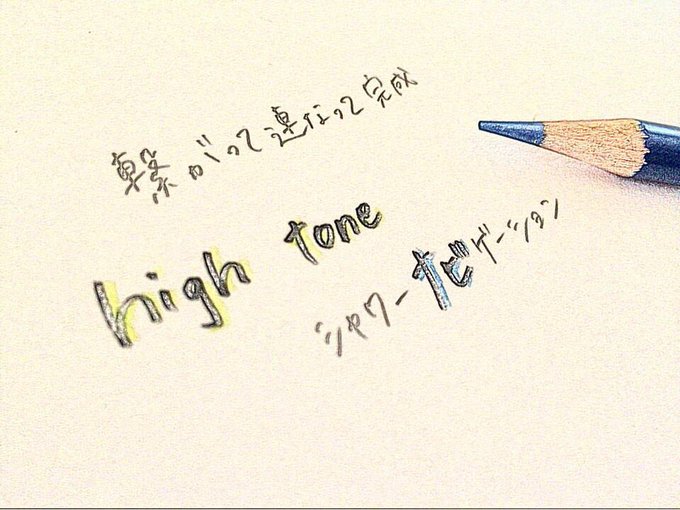 繋がって連なって完成
high tone
シャワーナビゲーション